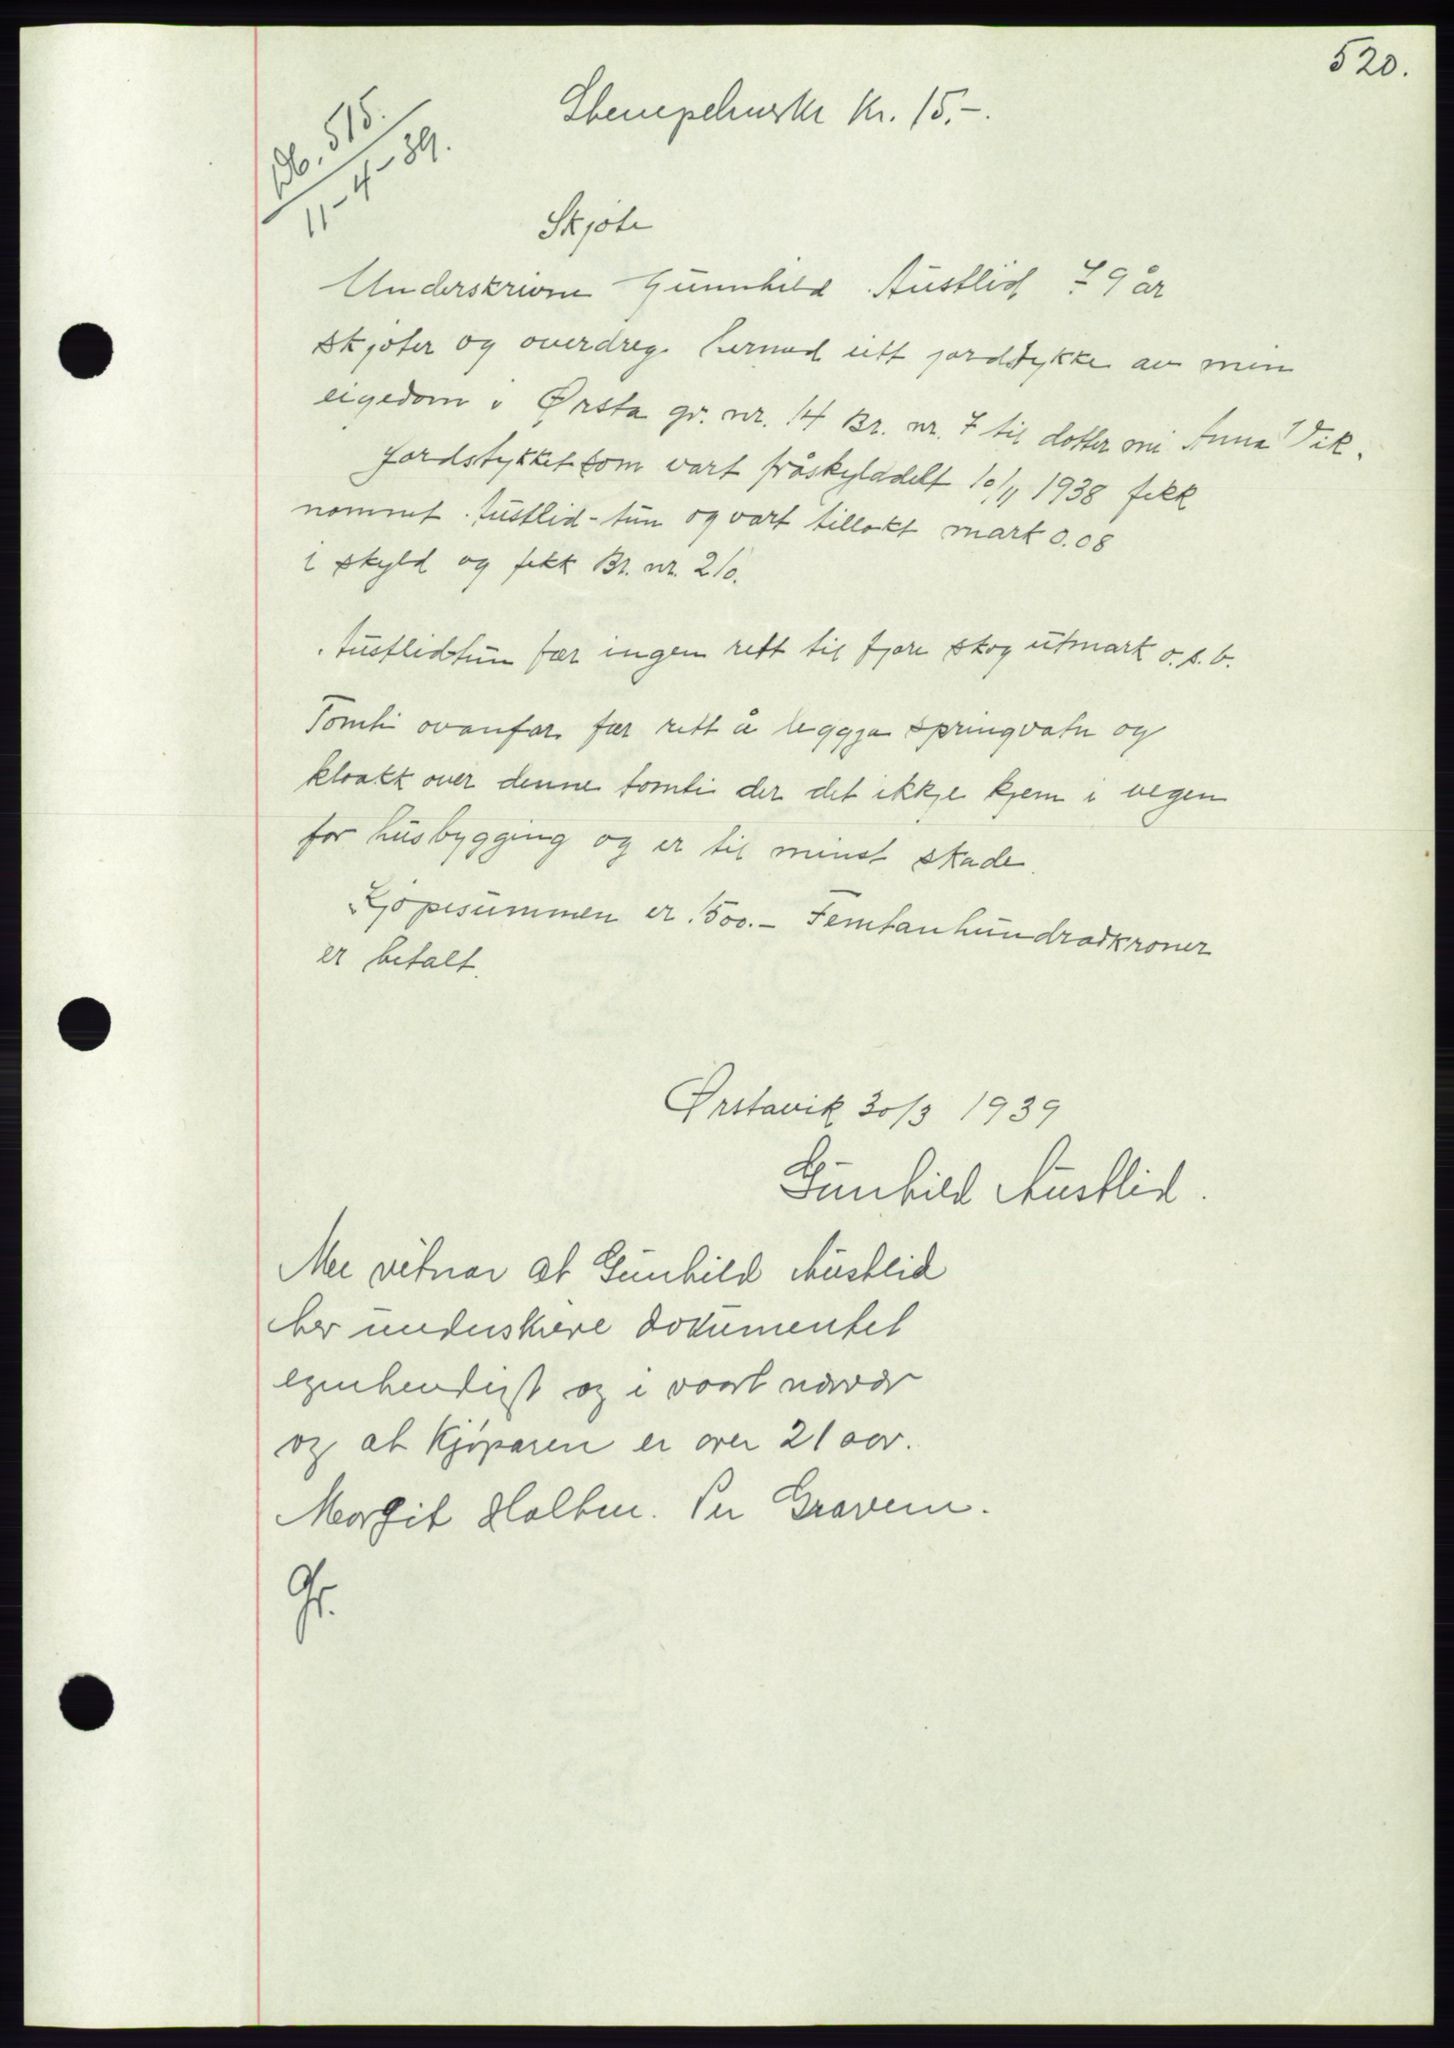 520.
Db. 515.
11-4-39.
Stempelmerke kr. 15.-.
Skjøte
Underskrivne Gunnhild Austlid 79 år
skjøter og overdreg hermed eitt jordstykke av min
eigedom i Ørsta gr. nr. 14 Br. nr. 7 til dotter mi Anna Vik.
Jordstykket som vart fråskylddelt 10/11 1938 fekk
nomnet Austlid-tun og vart tillakt mark 0.08
i skyld og fekk Br. nr. 210.
Austlidtun fær ingen rett til fjøre skog utmark o.s.b.
Tomti ovanfor fær rett å leggja springvatn og
kloakk over denne tomti der det ikkje kjem i vegen
for husbygging og er til minst skade.
Kjøpesummen er 1500.- Femtanhundradkroner
er betalt.
Ørstavik 30/3 1939
Gunhild Austlid.
Me vitnar at Gunhild Austlid
her underskreve dokumentet
egenhendigt og i vaart nærvær
og at kjøparen er over 21 aar.
Margit Holten. Per Gravem.
Gr.